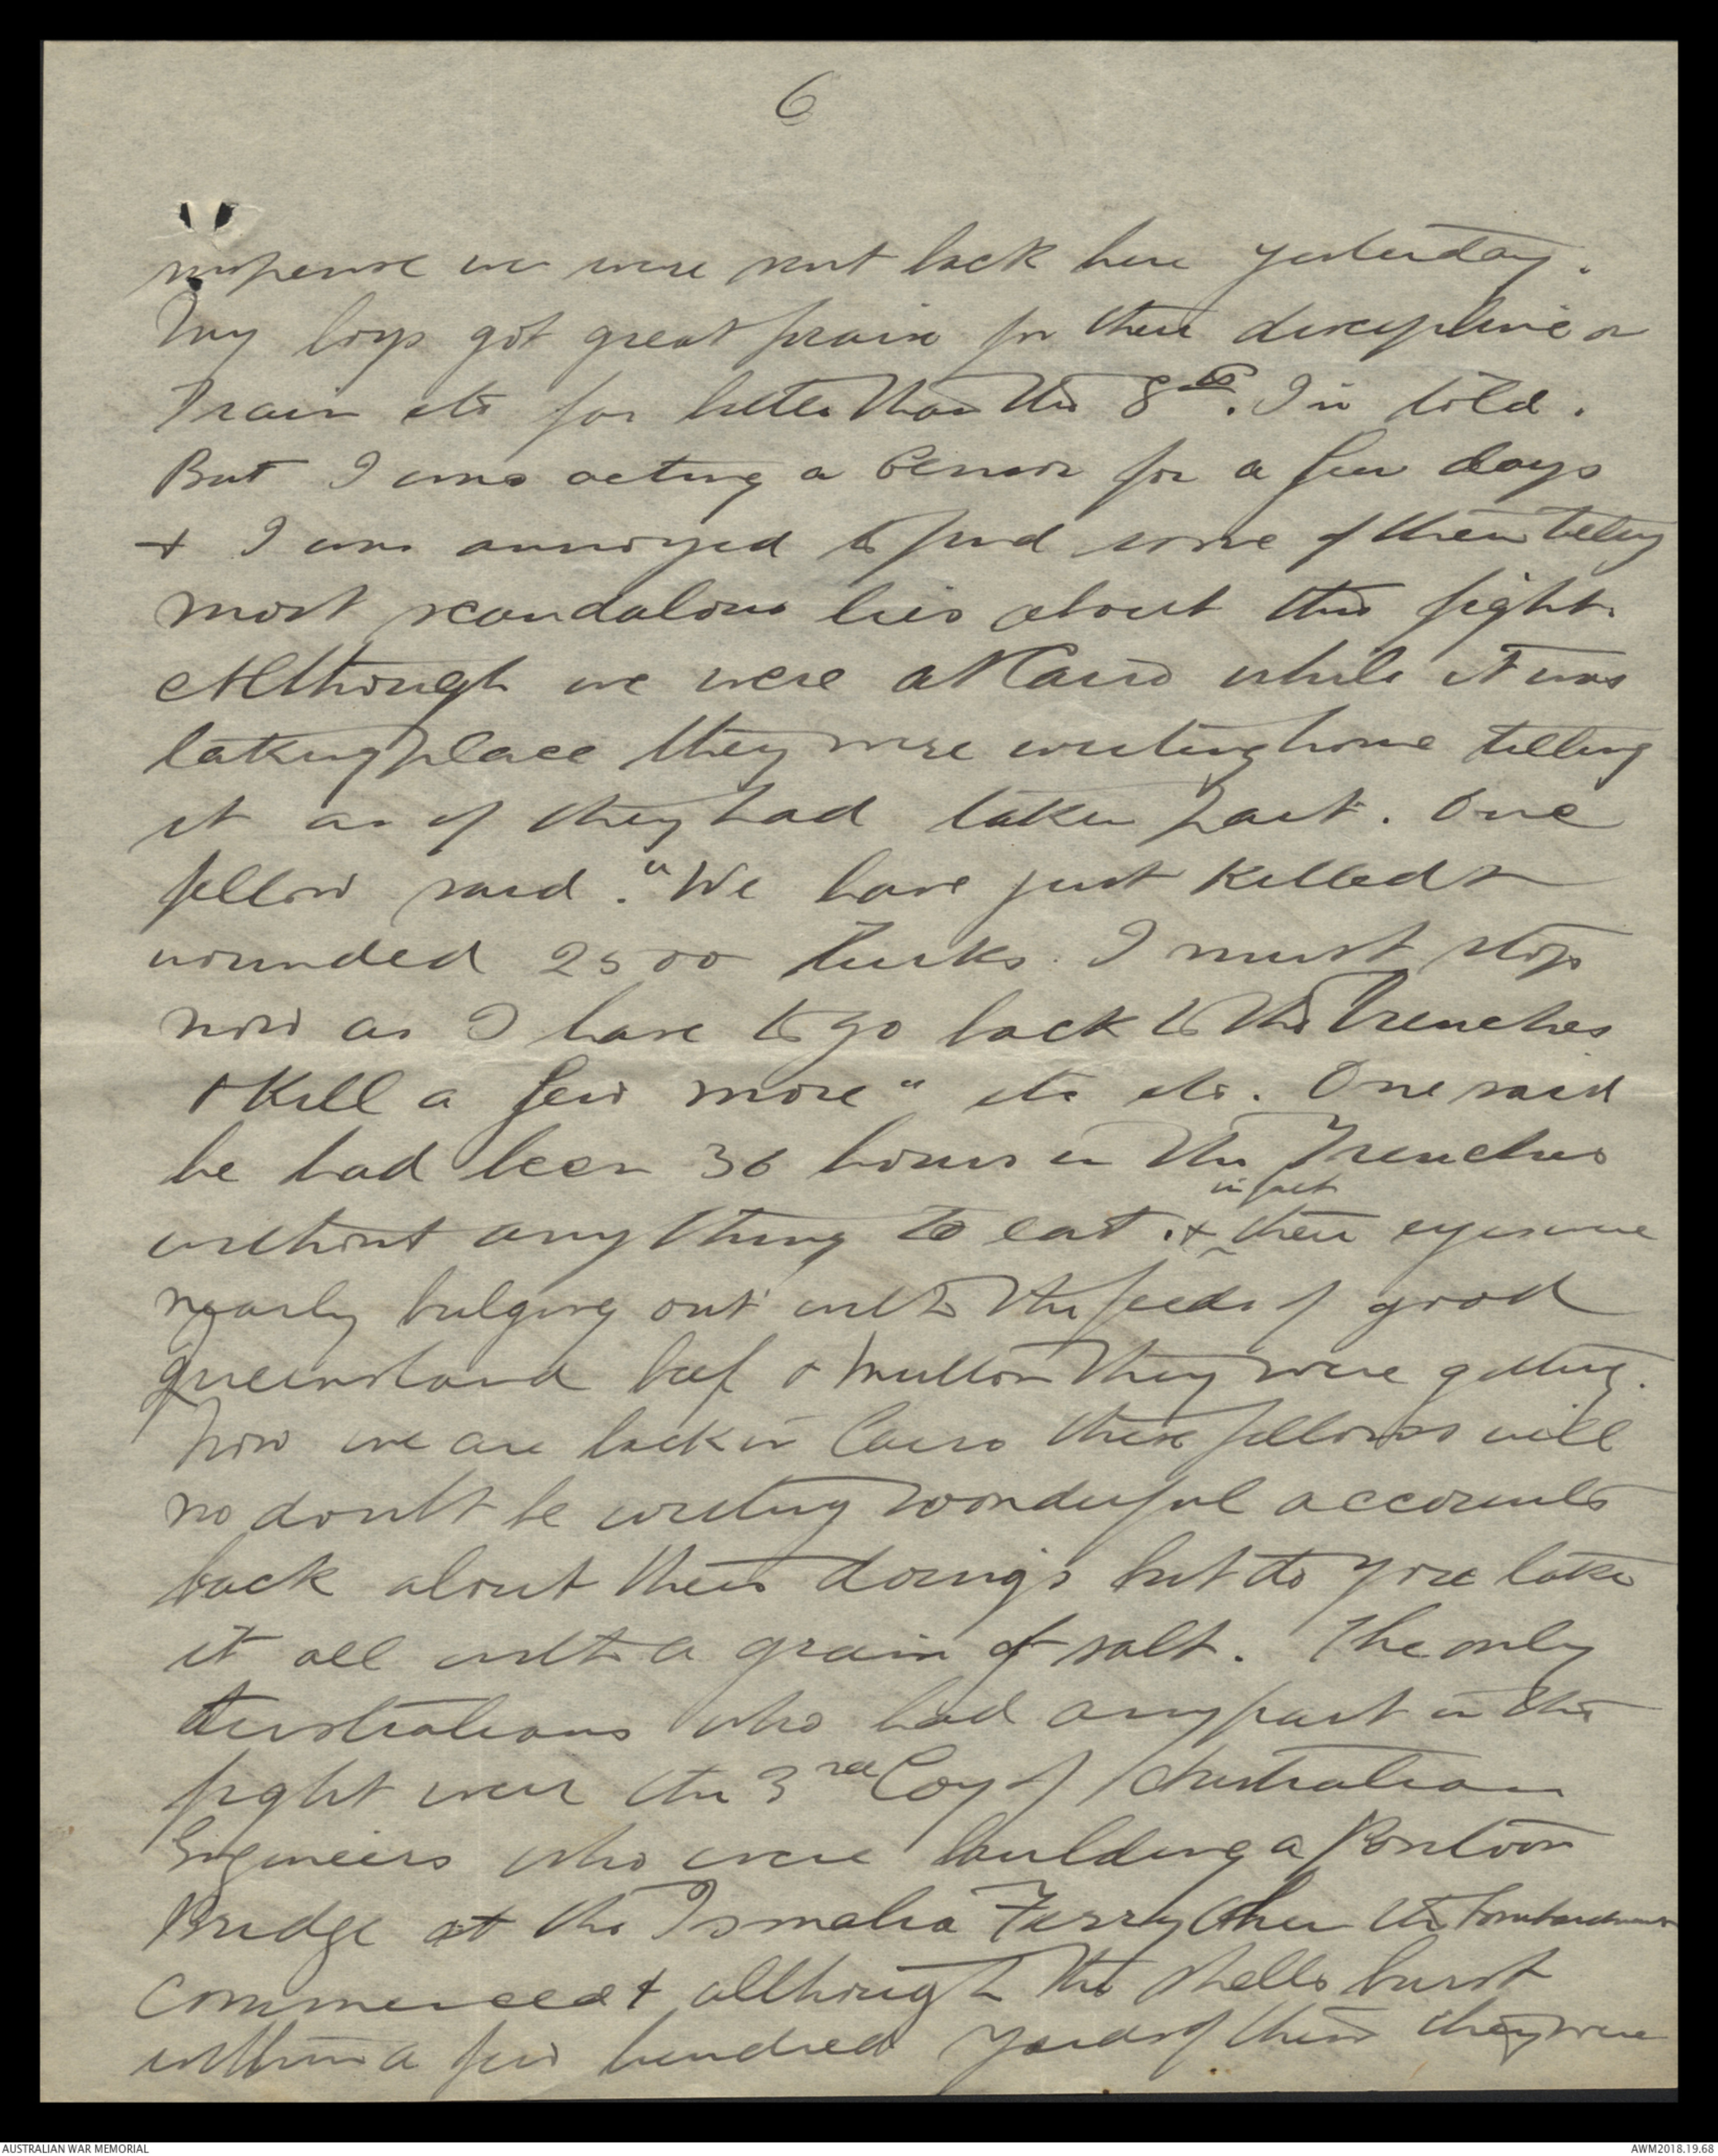 6
suspense we were sent back here yesterday.
My boys got great praise for their discipline on
Train etc far better than the 8th. I'm told.
But I was acting a Censor for a few days
+ I was annoyed to find some of them telling
most scandalous lies about this fight.
Although we were at Cairo while it was
taking place they were writing home telling
it as if they had taken part. One
fellow said. "We have just killed &
wounded 2500 Turks. I must stop
now as I have to go back to the Trenches
& Kill a few more" etc etc. One said
he had been 36 hours in the Trenches
in fact
without any thing to eat. + their eyes were
nearly bulging out with the feeds of good
Queensland beef & mutton they were getting.
Now we are back in Cairo these fellows will
no doubt be writing wonderful accounts
back about their doings but do you take
it all with a grain of salt. The only
Australians who had any part in the
fight were the 3rd Coy of Australian
Engineers who were building a Pontoon
Bridge at the Ismalia Ferry when the bombardment
commenced & although the shells burst
within a few hundred yards of them they were
AUSTRALIAN WAR MEMORIAL
AWM2018.19.68